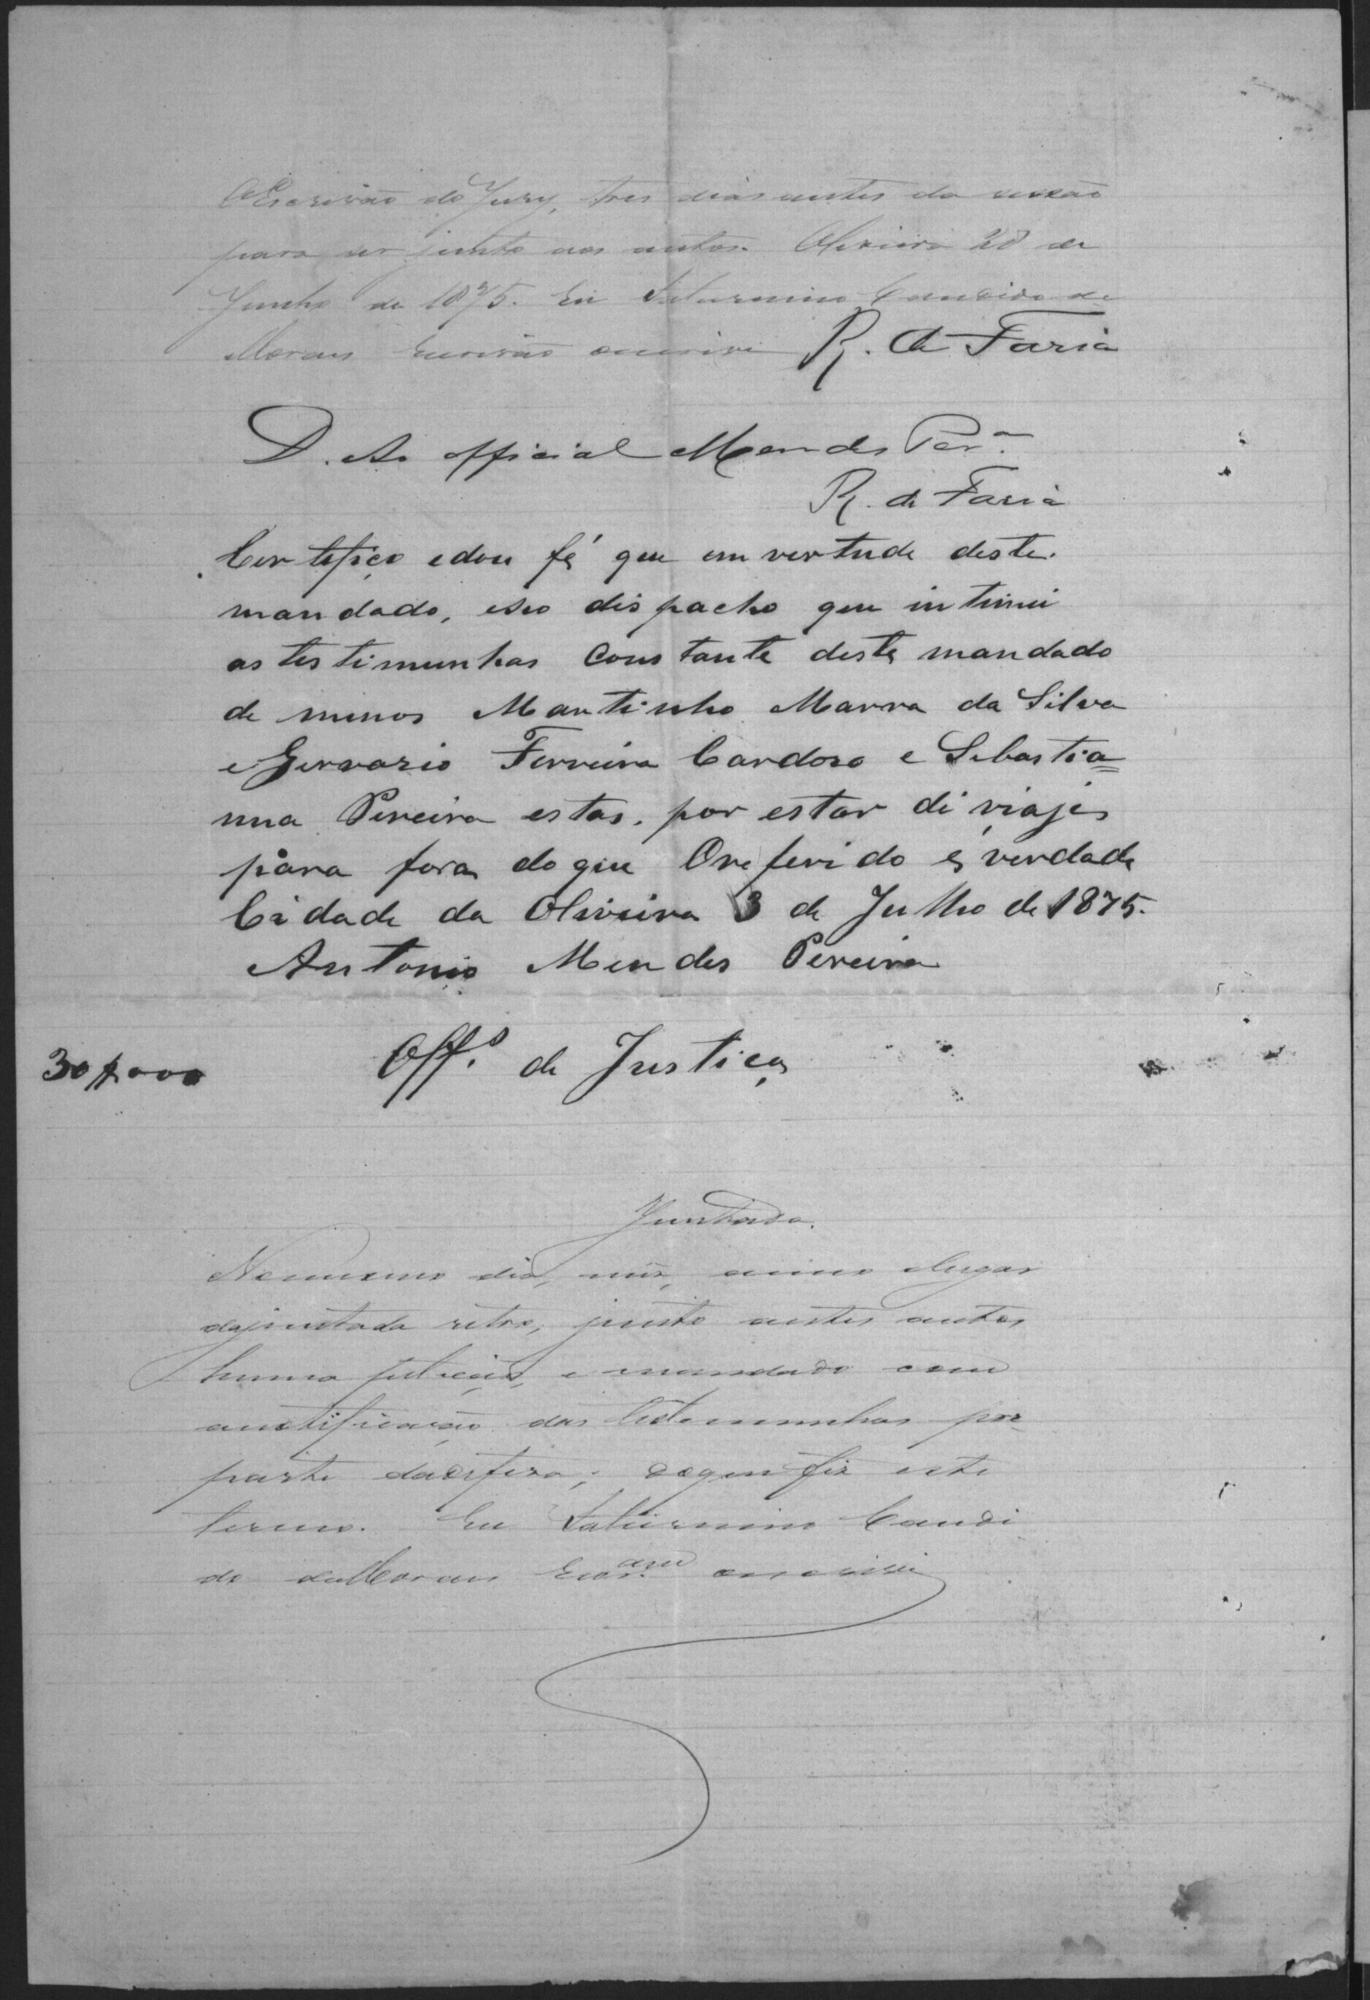 Escrivão do Jury, tres dias antes da sessão
para ser junto aos autos. Oliveira 28 de
Junho de 1875. Eu Saturnino Candido de
Moraes Escrivão escrivi R. de Faria
D. Ao official Mendes Per.ª
R. de Faria
Certefico edou fé que em vertude deste
mandado, eseo dispacho que intimei
as testimunhas Constante deste mandado
de menos Martinho Marra da Silva
e Gervazio Ferreira Cardozo e Sebastia=
nna Pereira estas. por estar di viajes
para fora do que Oreferido é verdade
Cidade da Oliveira 3 de Julho de 1875.
Antonio Mendes Pereira
30$000 Off.º de Justiça
Juntada.
Nomesmo dia, mez, anno elugar
dajuntada retro, junto aestes autos
huma petição, e mandado com
anotificação das testemunhas por
parte da; doque fiz este
termo. Eu Saturnino Candi
do de Moraes escrivi